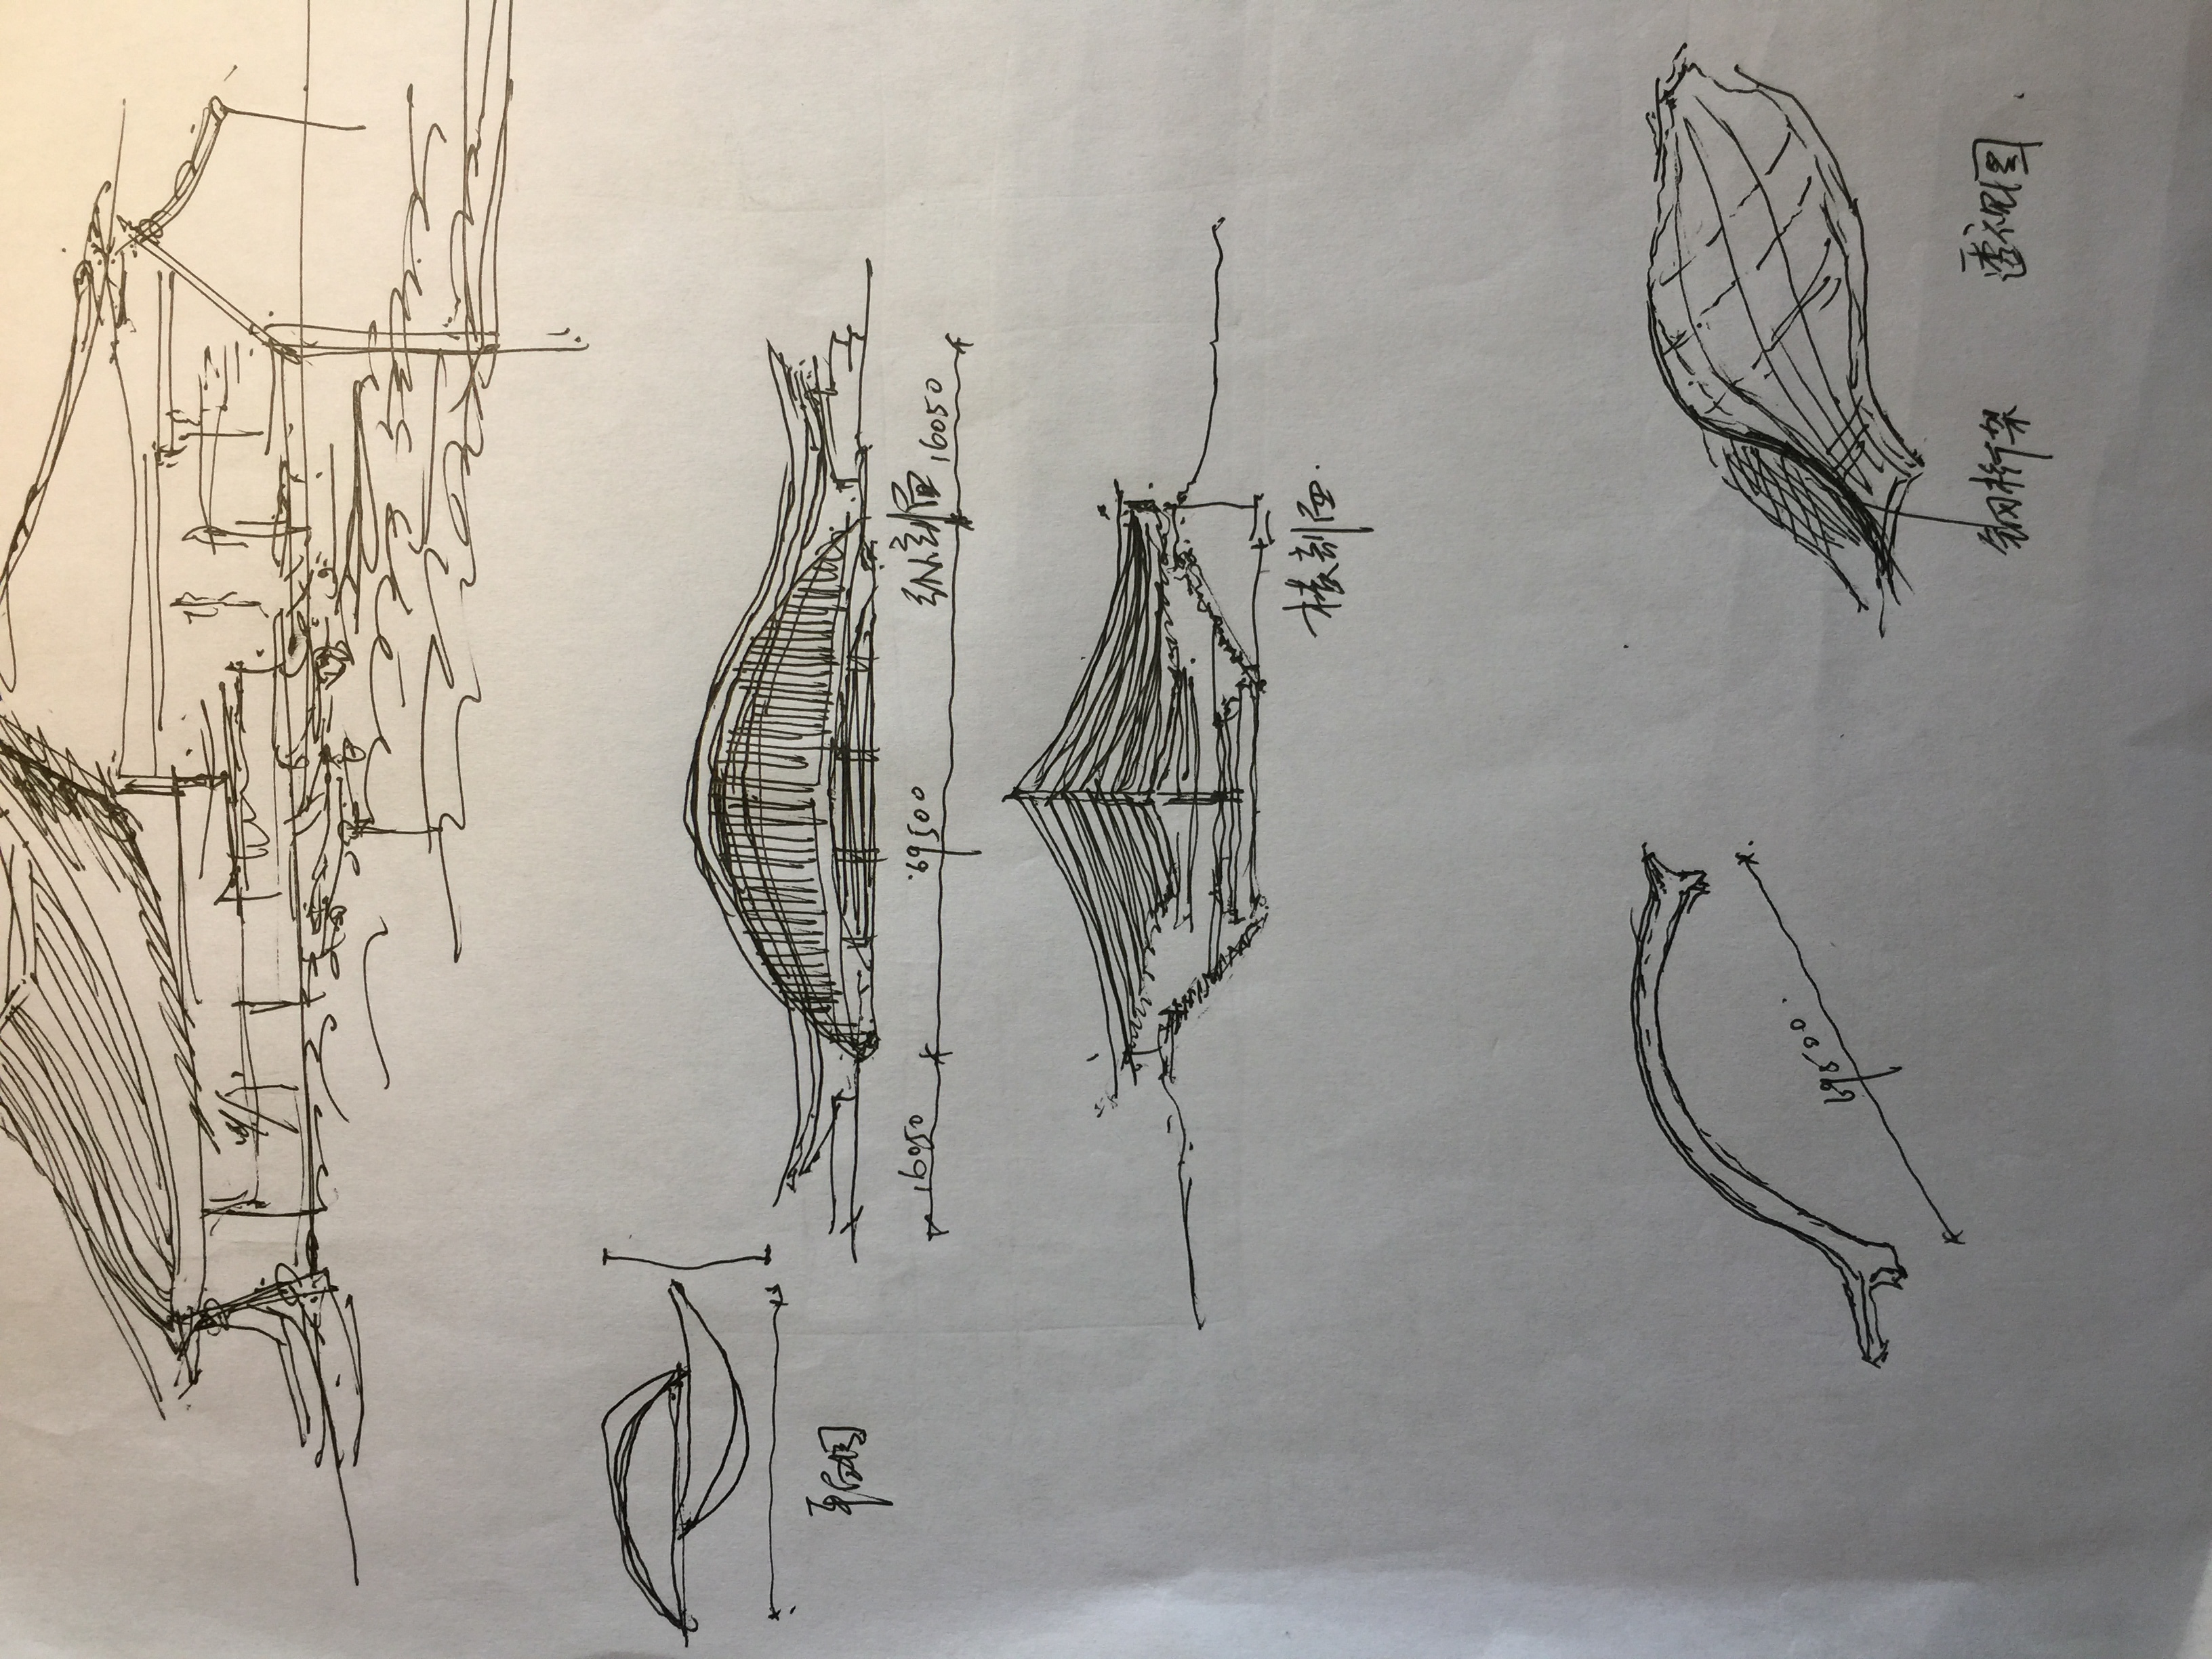 平面图
16050
69500
纵剖面
16050
横剖面
69500
钢桁架
透视图